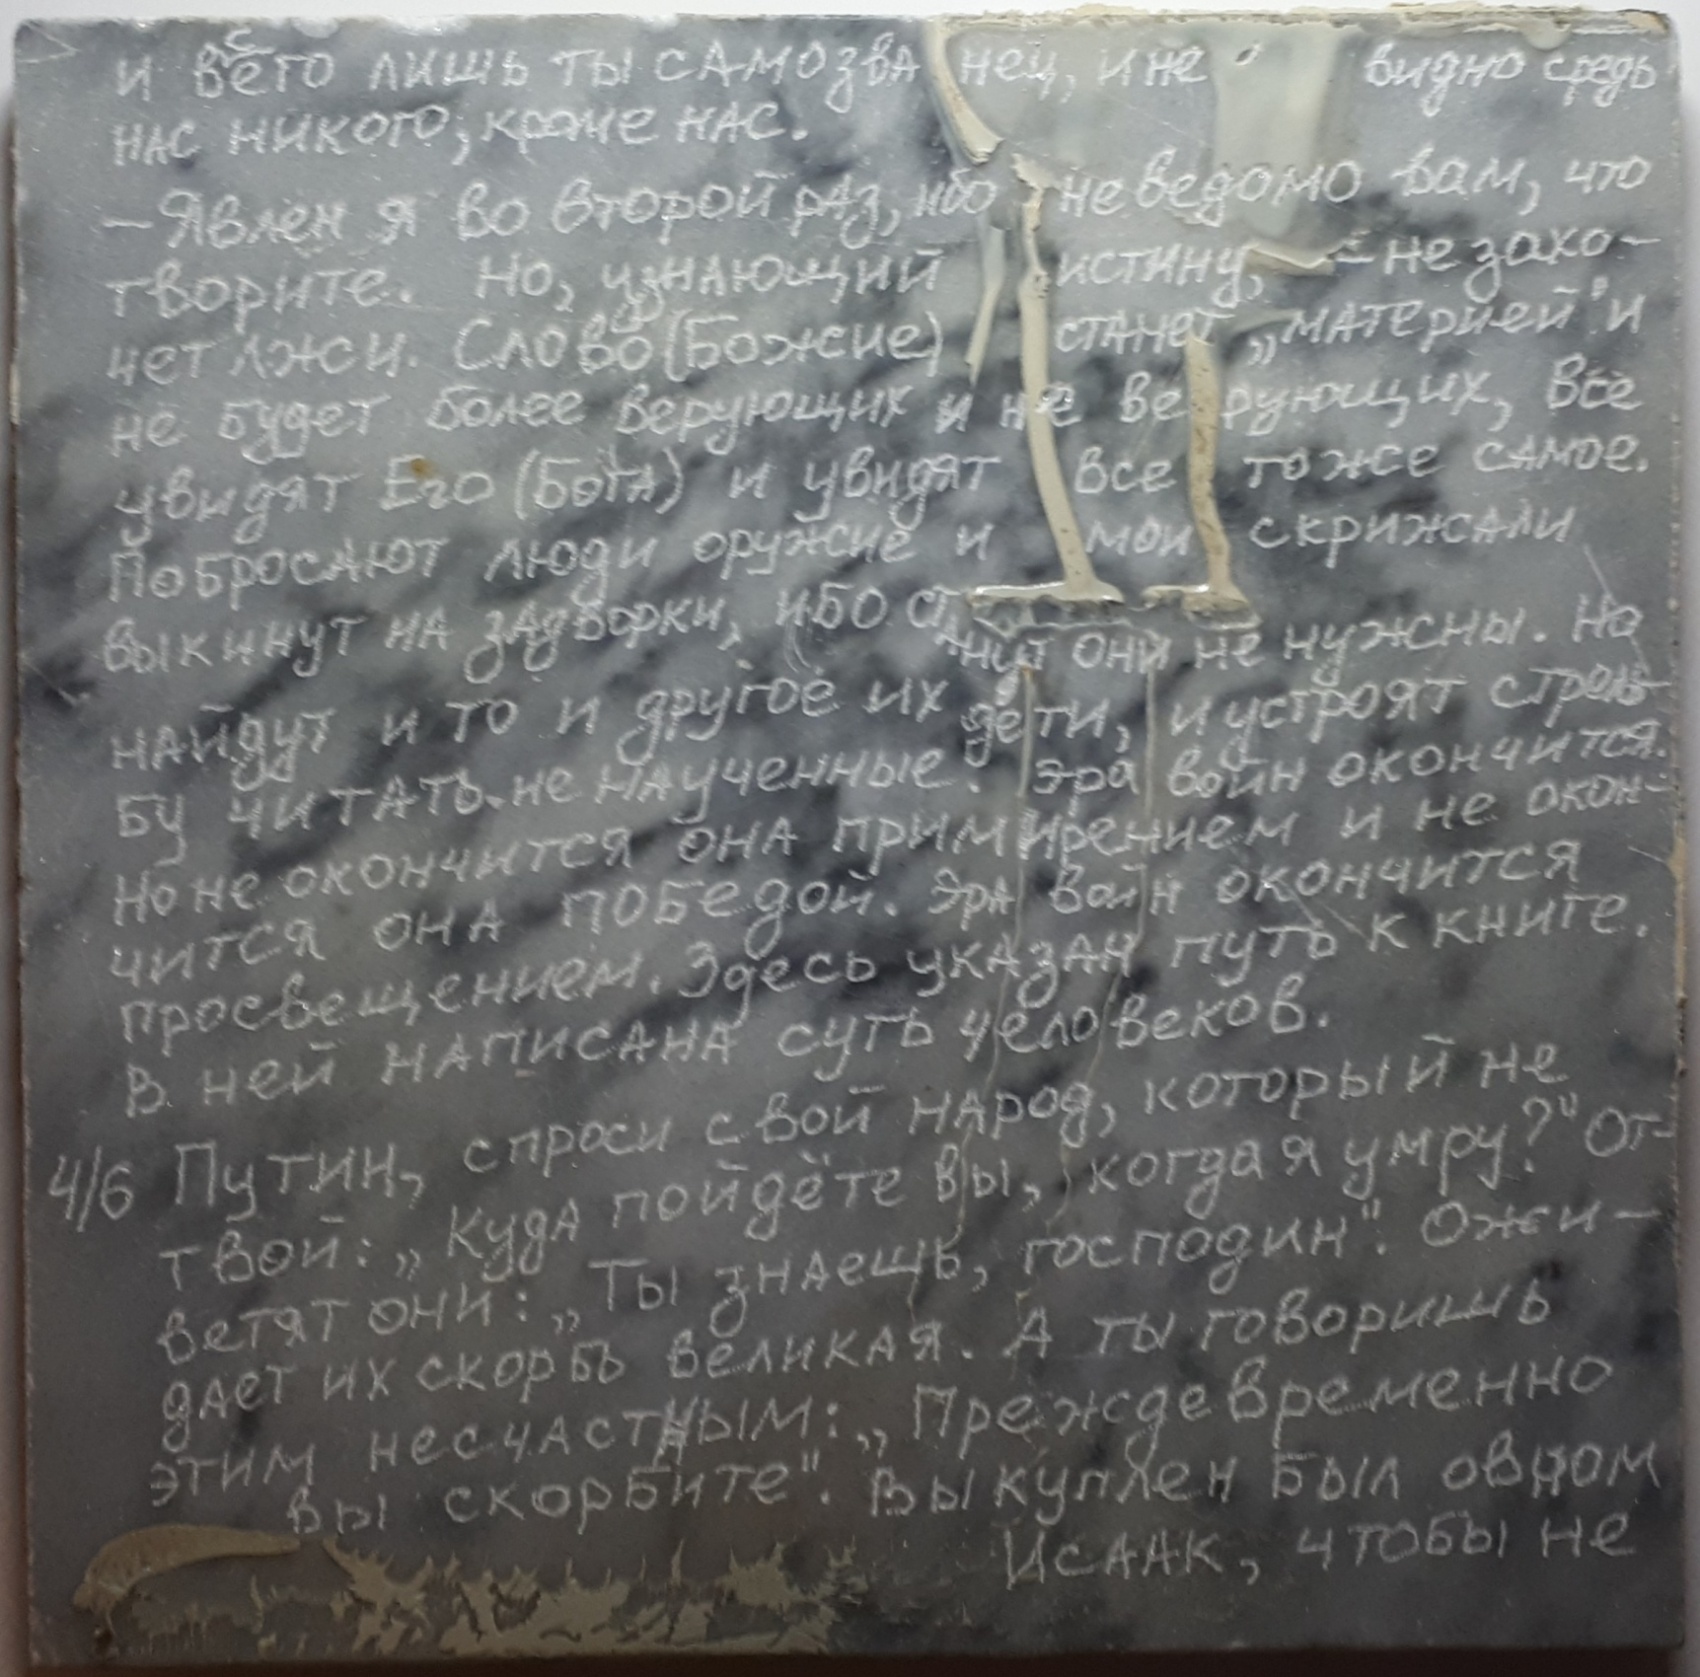 и всего лишь ты самозванец, и не видно средь
нас никого, кроме нас.
– Явлен я во второй раз, ибо неведомо вам, что
творите. Но, узнающий истину, – не захо-
чет лжи. Слово (Божие) станет „материей" и
не будет более верующих и не верующих, все
увидят Его (Бога) и увидят все тоже самое.
Побросают люди оружие и мои скрижали
выкинут на задворки, ибо станут они не нужны. Но
найдут и то и другое их дети, и устроят стрель-
бу читать не наученные. Эра войн окончится.
Но не окончится она примирением и не окон-
чится она победой. Эра войн окончится
просвещением. Здесь указан путь к книге.
В ней написана суть человеков.
4/6 Путин, спроси свой народ, который не
твой: „Куда пойдёте вы, когда я умру?" От-
ветят они: „Ты знаешь, господин". Ожи-
дает их скорбь великая. А ты говоришь
этим несчастным: „Преждевременно
вы скорбите". Выкуплен был овном
Исаак, чтобы не